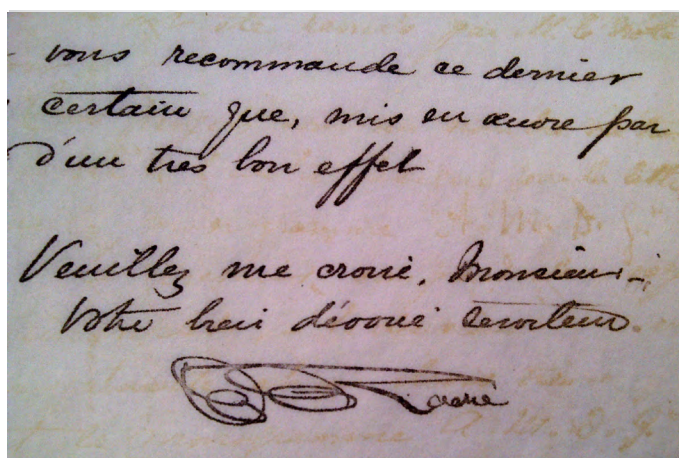 vous recommande ce dernier
certain que, mis en œuvre par
d'un tres bon effet
Veuillez me croire, Monsieur
Votre bien dévoué serviteur